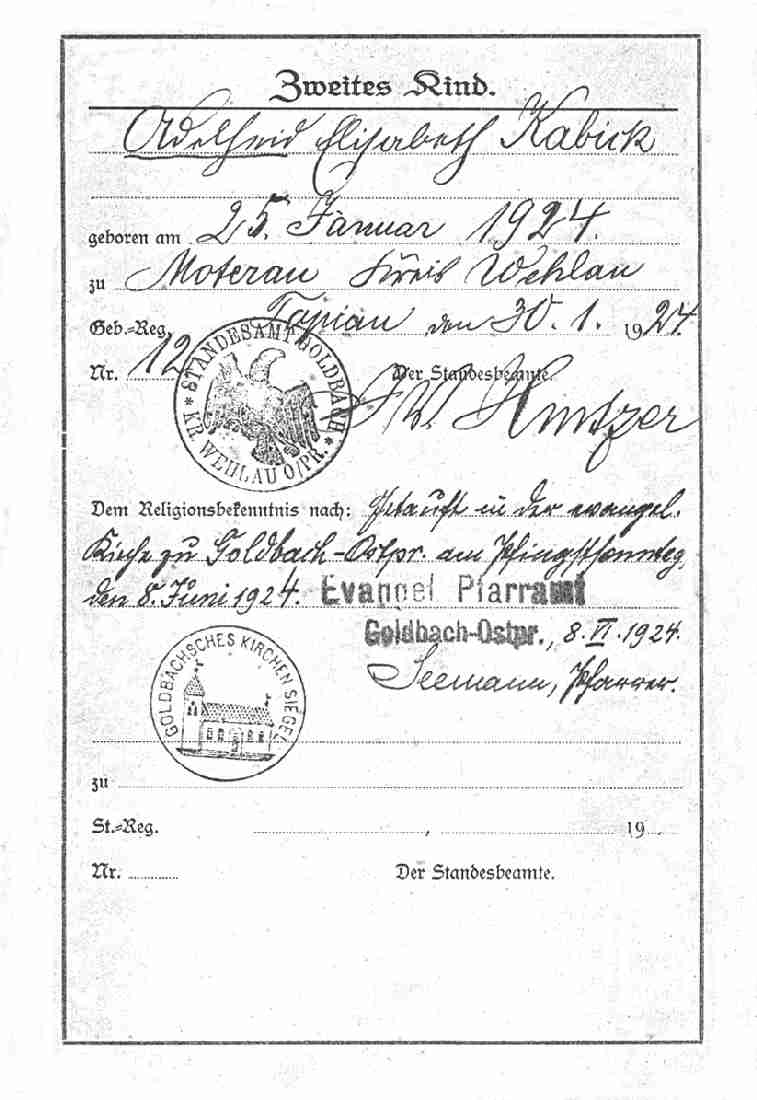 Zweites Kind.
Adelheid Elisabeth Kabick
geboren am 25. Januar 1924.
zu Moterau Kreis Wehlau
Geb.=Reg. Tapiau den 30. 1. 1924.
Nr. 12 Der Standesbeamte.
STANDESAMT GOLDBACH
KR. WEHLAU O/PR.
Dem Religionsbekenntnis nach: Getauft in der evangel.
Kirche zu Goldbach-Ostpr. am Pfingstsonntag,
den 8. Juni 1924. Evangel Pfarramt
Goldbach-Ostpr., 8. VI. 1924.
Seemann, Pfarrer.
GOLDBACHSCHES KIRCHEN SIEGEL
zu
St.=Reg. , 19
Nr. Der Standesbeamte.